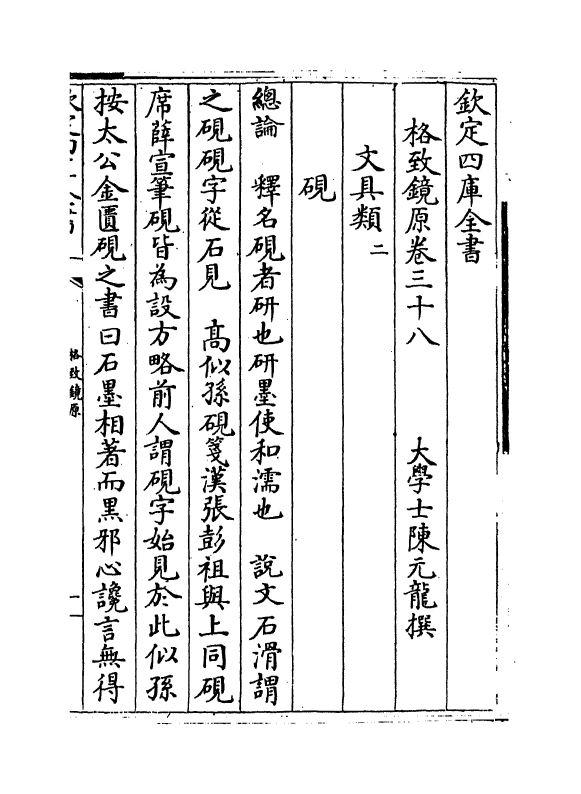 欽定四庫全書
格致鏡原卷三十八 大學士陳元龍撰
文具類二
硯
總論 釋名硯者研也研墨使和濡也 說文石滑謂
之硯硯字從石見 高似孫硯箋漢張彭祖與上同硯
席薛宣筆硯皆為設方略前人謂硯字始見於此似孫
按太公金匱硯之書曰石墨相著而黑邪心讒言無得
格致鏡原
一